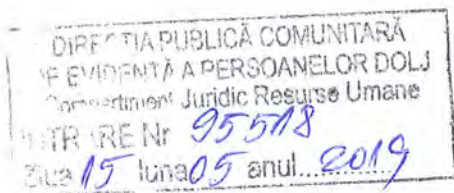 DIRECTIA PUBLICĂ COMUNITARĂ
DE EVIDENȚĂ A PERSOANELOR DOLJ
Compartiment Juridic Resurse Umane
INTRARE Nr 95518
Ziua 15 luna 05 anul...2019